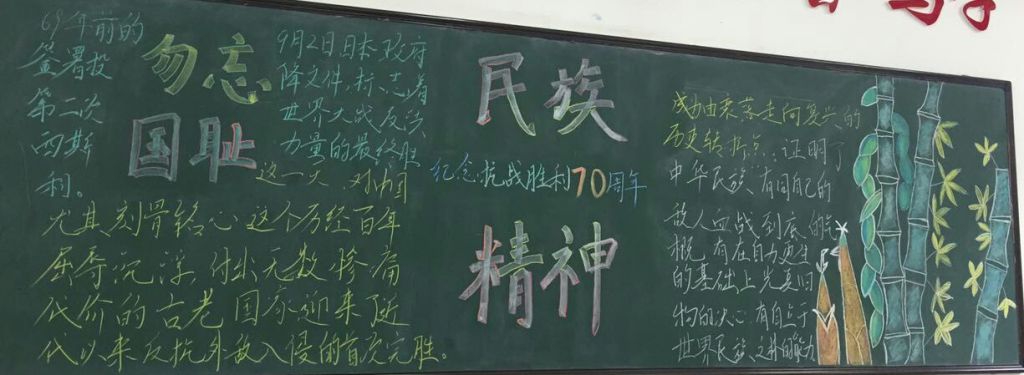 勿忘
国耻
69年前的9月2日日本政府
签署投降文件,标志着
第二次世界大战反法
西斯力量的最终胜
利。这一天,对中国
尤其刻骨铭心这个历经百年
屈辱沉浮,付出无数惨痛
代价的古老国家迎来近
代以来反抗外敌入侵的首次完胜。
民族
纪念抗战胜利70周年
精神
成为由衰落走向复兴的
历史转折点,证明了
中华民族、有同自己的
敌人血战到底的气
概,有在自力更生
的基础上光复旧
物的决心,有自立于
世界民族之林的能力